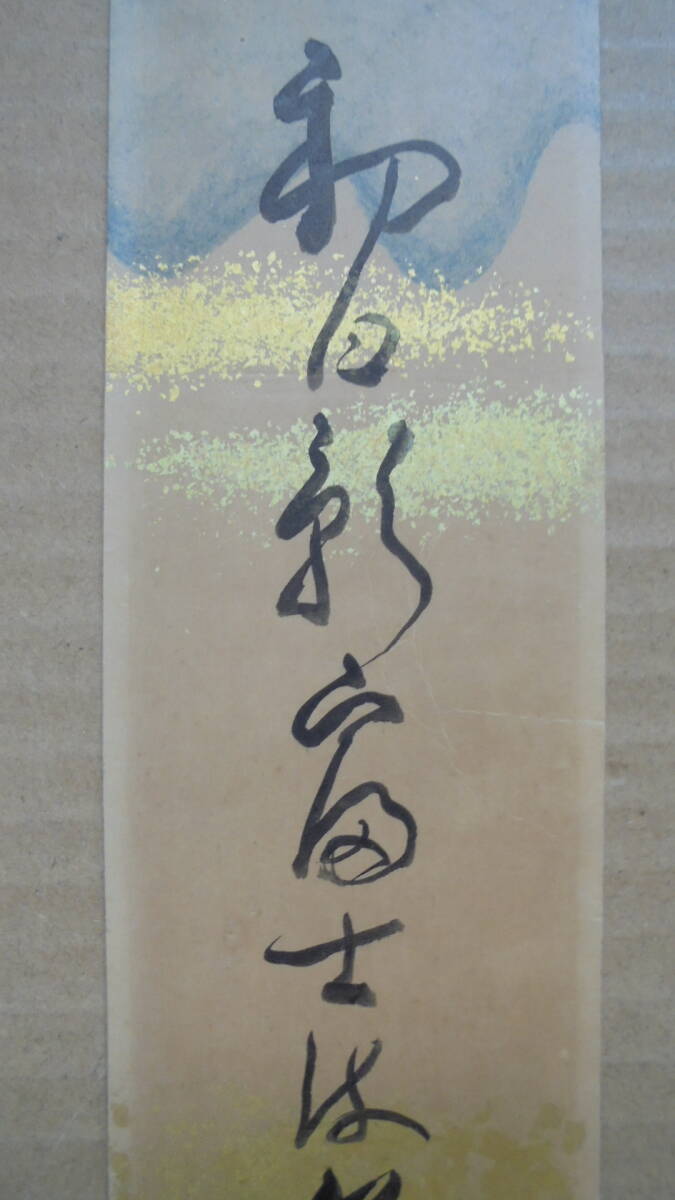 初日影富士は